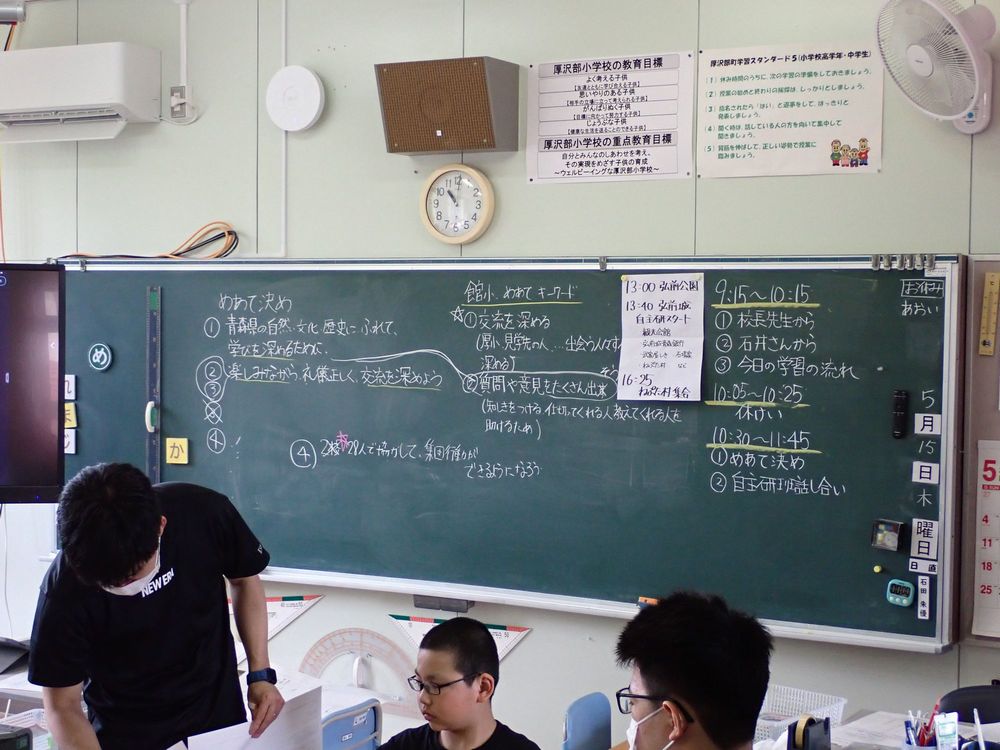 厚沢部小学校の教育目標
よく考える子供
【友達とともに学び合える子供】
思いやりのある子供
【相手の立場に立って考えられる子供】
がんばりぬく子供
【目標に向かって努力する子供】
じょうぶな子供
【健康な生活を送ることのできる子供】
厚沢部小学校の重点教育目標
自分とみんなのしあわせを考え、
その実現をめざす子供の育成
～ウェルビーイングな厚沢部小学校～
厚沢部町学習スタンダード5(小学校高学年・中学生)
(1) 休み時間のうちに、次の学習の準備をしておきましょう。
(2) 授業の始めと終わりの挨拶は、しっかりとしましょう。
(3) 指名されたら「はい」と返事をして、はっきりと
発表しましょう。
(4) 聞く時は、話している人の方を向いて集中して
聞きましょう。
(5) 背筋を伸ばして、正しい姿勢で授業に
臨みましょう。
めあて決め
① 青森県の自然・文化・歴史にふれて、
学びを深めるために、
② 楽しみながら、礼儀正しく、交流を深めよう
③
④
④ 2校29人で協力して、集団行動が
できるようになろう
館小 めあて キーワード
☆①交流を深める
深める)
② 質問や意見をたくさん出来
助けるため)
13:00 弘前公園
13:40 弘前城
自主研スタート
観光会館
ねぷた村 など
16:25
ねぷた村 集合
9:15～10:15
① 校長先生から
② 石井さんから
③ 今日の学習の流れ
10:05～10:25
休けい
10:30～11:45
①めあて決め
② 自主研班話し合い
お休み
あおい
5
月
15
日
木
曜
日
日直
石田朱優
め
れ
ま
か
NEW ERA
5
4
11
18
25